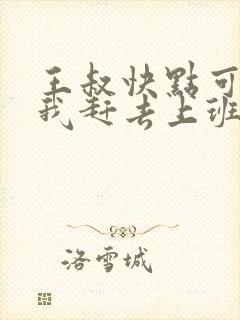 王叔快點可
我赶去上班
洛雪城